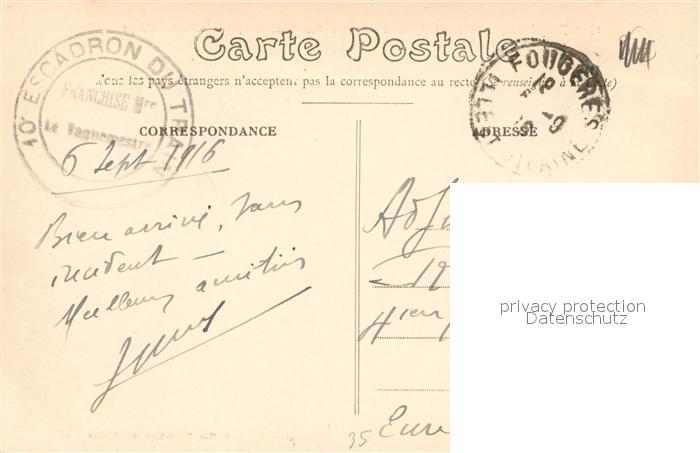 Carte Postale
Tous les pays étrangers n'acceptent pas la correspondance au recto (Se renseigner à la Poste)
10e ESCADRON DU TRAIN
FRANCHISE Mre
Le Vaguemestre
FOUGERES
ILLE-ET-VILAINE
CORRESPONDANCE
ADRESSE
6 Sept 1916
Bien arrivé, sans
incident —
Meilleurs amitiés
Adju
4ien
35
Eure
privacy protection
Datenschutz